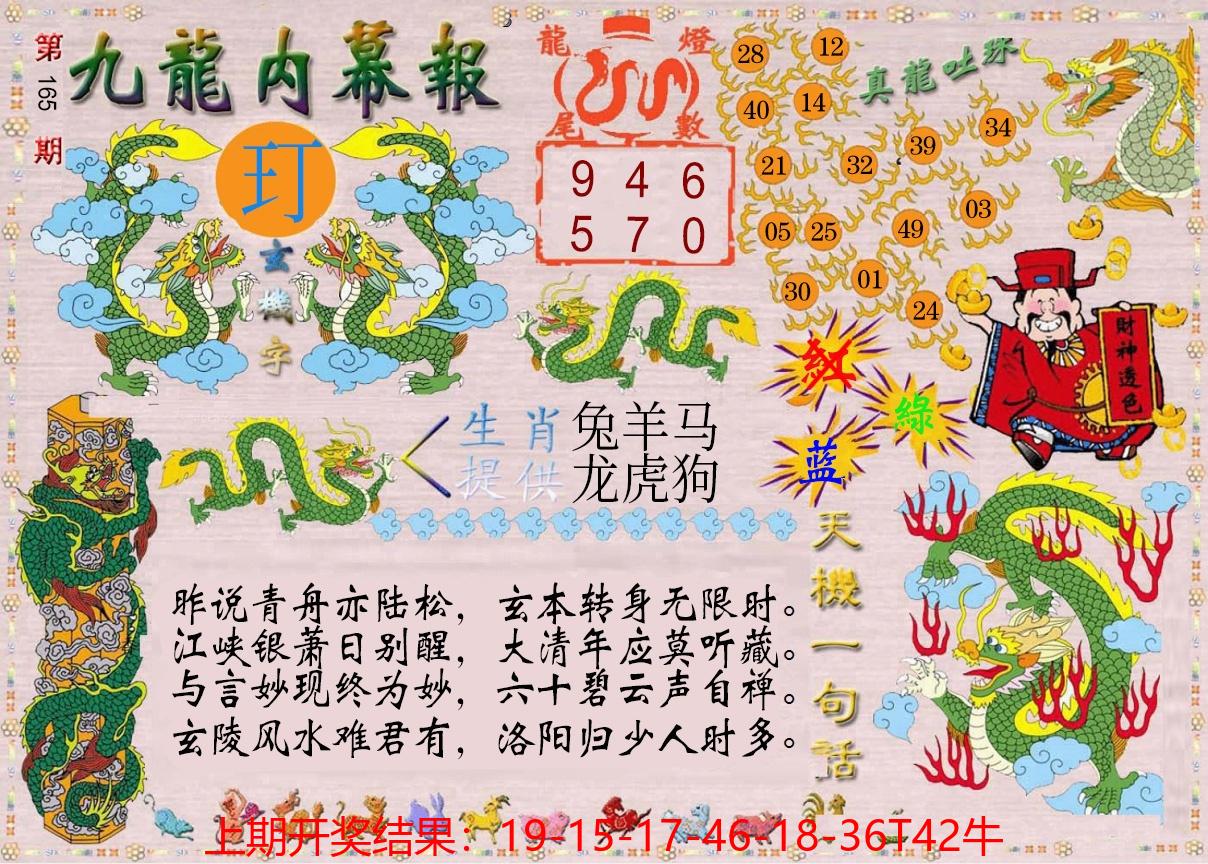 第165期
九龍内幕報
玎
玄機字
龍燈
尾數
9 4 6
5 7 0
真龍吐珠
28 12
40 14
39 34
21 32
05 25 49 03
30 01 24
財神透色
紅
綠
蓝
生肖 兔羊马
提供 龙虎狗
天機一句話
昨说青舟亦陆松，玄本转身无限时。
江峡银萧日别醒，大清年应莫听藏。
与言妙现终为妙，六十碧云声自禅。
玄陵风水难君有，洛阳归少人时多。
上期开奖结果：19-15-17-46-18-36T42牛